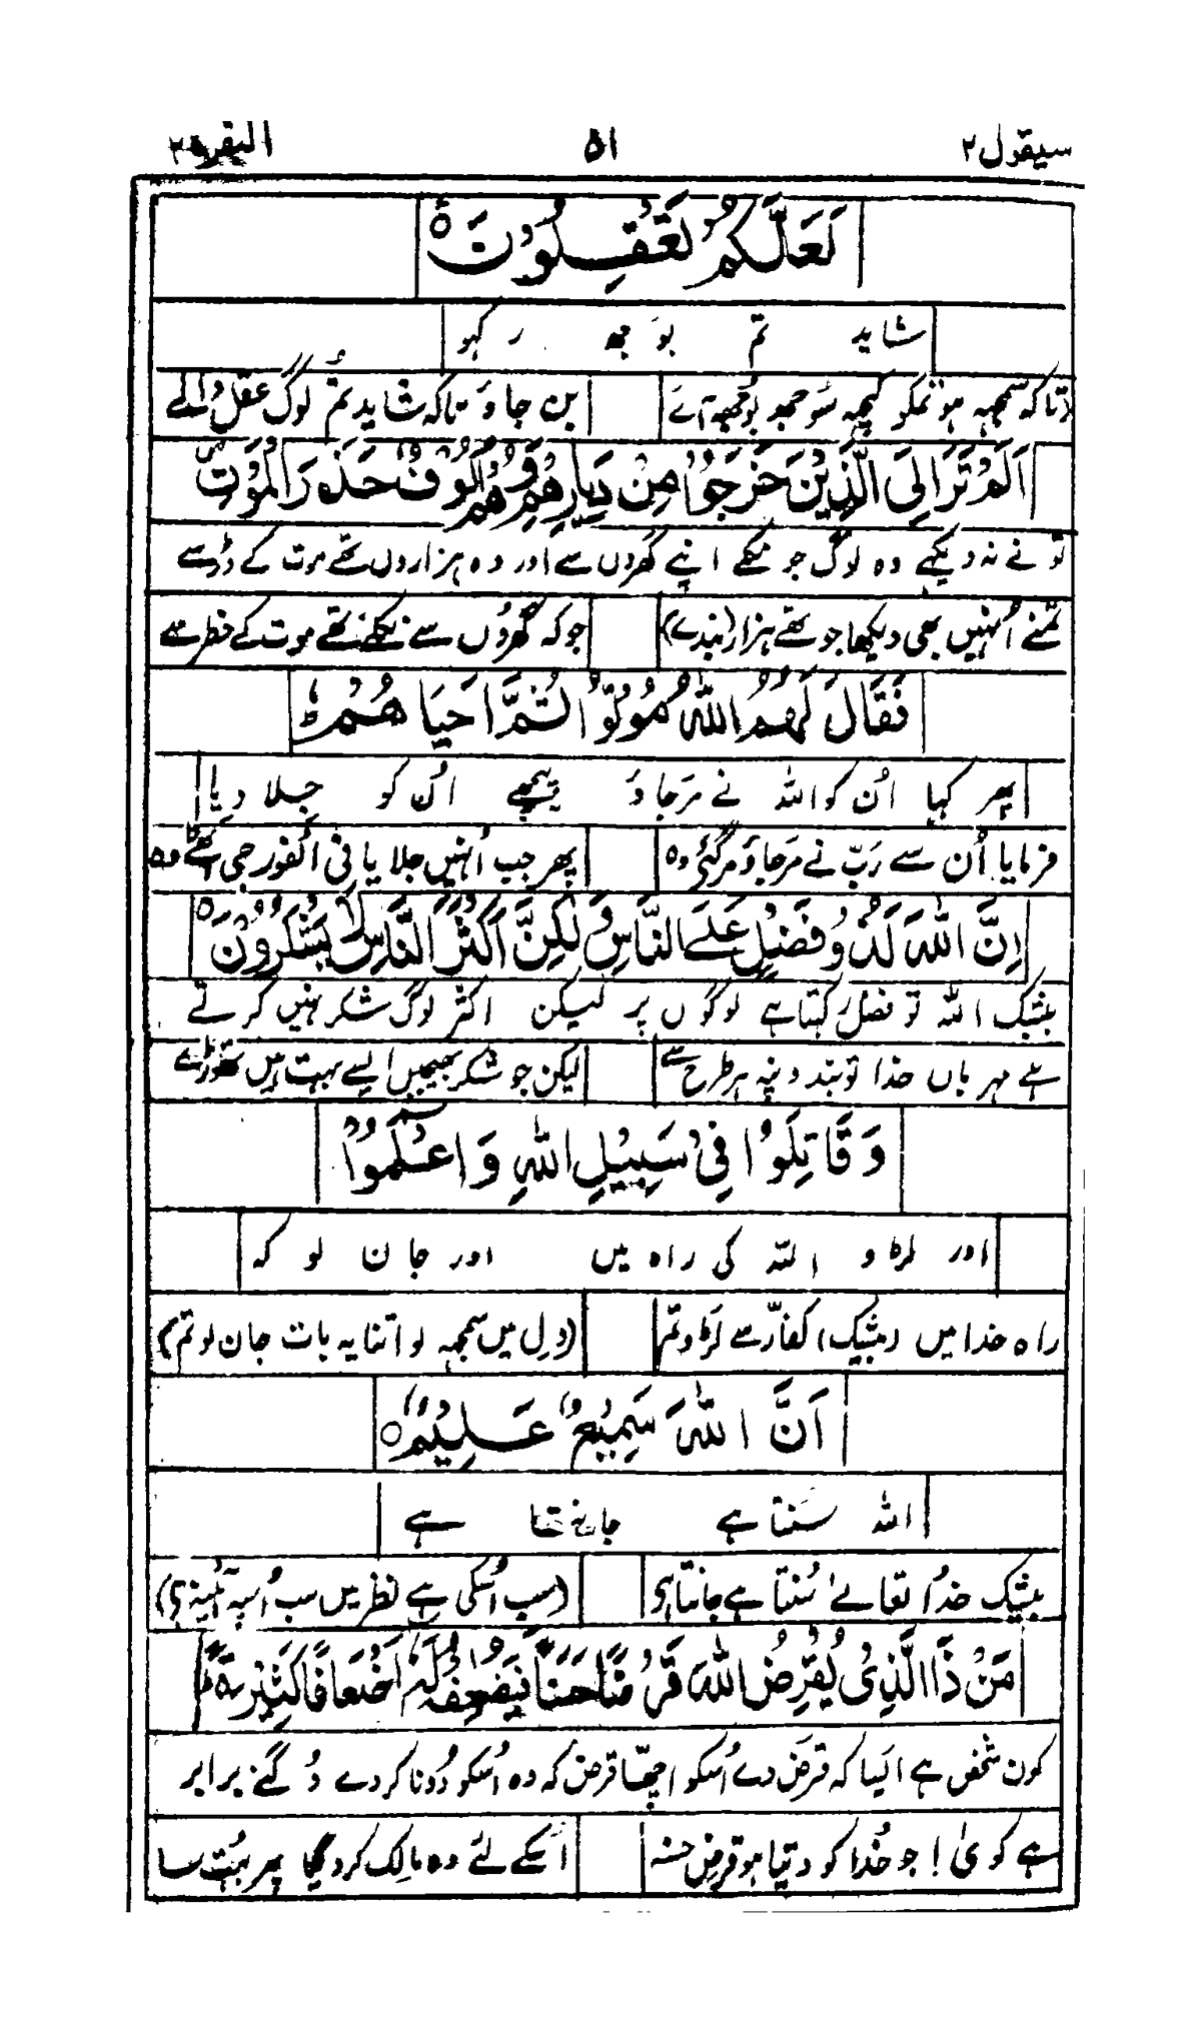 سیقول ٢ ۵١ البقرة ٢
لَعَلَّكُمْ تَعْقِلُوْنَ
شاید تم بوجھ رکہو
(تاکہ سمجہہ ہو تمکو کچہہ سوجھ بوجھ آئے بن جاؤ تاکہ شاید تم لوگ عقل والے
اَلَمْ تَرَ اِلَى الَّذِيْنَ خَرَجُوْا مِنْ دِيَارِهِمْ وَهُمْ اُلُوْفٌ حَذَرَ الْمَوْتِ
تونے نہ دیکہے وہ لوگ جو نکلے اپنے گھروں سے اور وہ ہزاروں تھے موت کے ڈر سے
تمنے اُنہیں بھی دیکھا جو تھے ہزار (بندے) جو کہ گھروں سے نکلے تھے موت کے خطر سے
فَقَالَ لَهُمُ اللّٰهُ مُوْتُوْا ثُمَّ اَحْيَاهُمْ ط
پھر کہا اُن کو اللہ نے مرجاؤ پیچھے اُن کو جلا دیا
فرمایا اُن سے رَبّ نے مرجاؤ مرگئے وہ پھر جب اُنہیں جلایا فی الفور جی اٹھے وہ
اِنَّ اللّٰهَ لَذُوْ فَضْلٍ عَلَى النَّاسِ وَلٰكِنَّ اَكْثَرَ النَّاسِ لَا يَشْكُرُوْنَ
بیشک اللہ تو فضل رکہتا ہے لوگوں پر لیکن اکثر لوگ شکر نہیں کرتے
ہے مہرباں خدا تو بندونپہ ہر طرح سے لیکن جو شکر بھیجیں ایسے بہت ہیں تھوڑے
وَقَاتِلُوْا فِيْ سَبِيْلِ اللّٰهِ وَاعْلَمُوْا
اور لڑو اللہ کی راہ میں اور جان لو کہ
راہ خدا میں (بیشک) کفار سے لڑو تم (دل میں سمجہہ لو اتنا یہ بات جان لو تم)
اَنَّ اللّٰهَ سَمِيْعٌ عَلِيْمٌ
اللہ سُنتا ہے جانتا ہے
بیشک خدا تعالےٰ سُنتا ہے جانتا ہی (سب اُسکی ہے نظر میں سب اُسپہ آئینہ ہی)
مَنْ ذَا الَّذِيْ يُقْرِضُ اللّٰهَ قَرْضًا حَسَنًا فَيُضٰعِفَهٗ لَهٗ اَضْعَافًا كَثِيْرَةً ط
کون شخص ہے ایسا کہ قرض دے اُسکو اچھا قرض کہ وہ اُسکو دُونا کردے دُگنے برابر
ہے کوئ! جو خُدا کو دیتا ہو قرض حسنہ اُسکے لئے وہ مالک کردیگا پھر بہُت سا